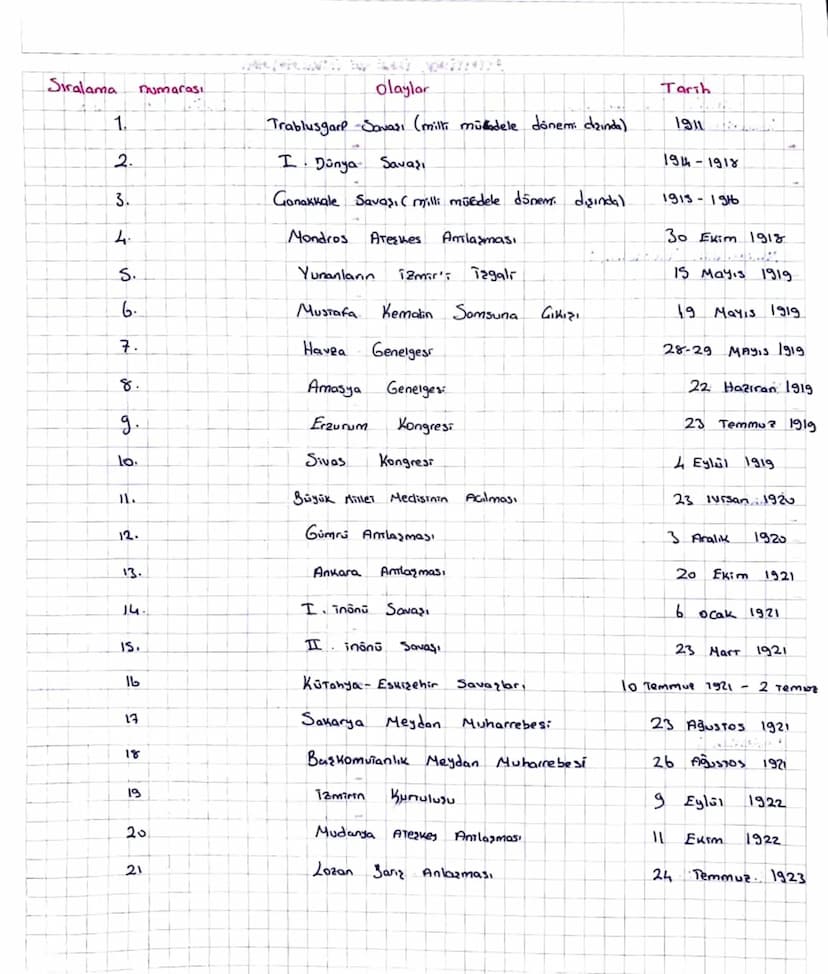 Sıralama numarası Olaylar Tarih
1. Trablusgarp Savaşı (milli mücadele dönemi dışında) 1911
2. I. Dünya Savaşı 1914-1918
3. Çanakkale Savaşı (milli mücedele dönemi dışında) 1915-1916
4. Mondros Ateşkes Antlaşması 30 Ekim 1918
5. Yunanların İzmir'i İşgali 15 Mayıs 1919
6. Mustafa Kemalin Samsuna Çıkışı 19 Mayıs 1919
7. Havza Genelgesi 28-29 MAyıs 1919
8. Amasya Genelgesi 22 Haziran 1919
9. Erzurum Kongresi 23 Temmuz 1919
10. Sivas Kongresi 4 Eylül 1919
11. Büyük Millet Meclisinin Açılması 23 Nisan 1920
12. Gümrü Antlaşması 3 Aralık 1920
13. Ankara Antlaşması 20 Ekim 1921
14. I. inönü Savaşı 6 ocak 1921
15. II. inönü Savaşı 23 Mart 1921
16 Kütahya-Eskişehir Savaşları 10 Temmuz 1921 - 2 Temuz
17 Sakarya Meydan Muharrebesi 23 Ağustos 1921
18 Başkomutanlık Meydan Muharrebesi 26 Ağustos 1921
19 İzmirin Kurtuluşu 9 Eylül 1922
20 Mudanya Ateşkes Antlaşması 11 Ekim 1922
21 Lozan Barış Anlaşması 24 Temmuz 1923